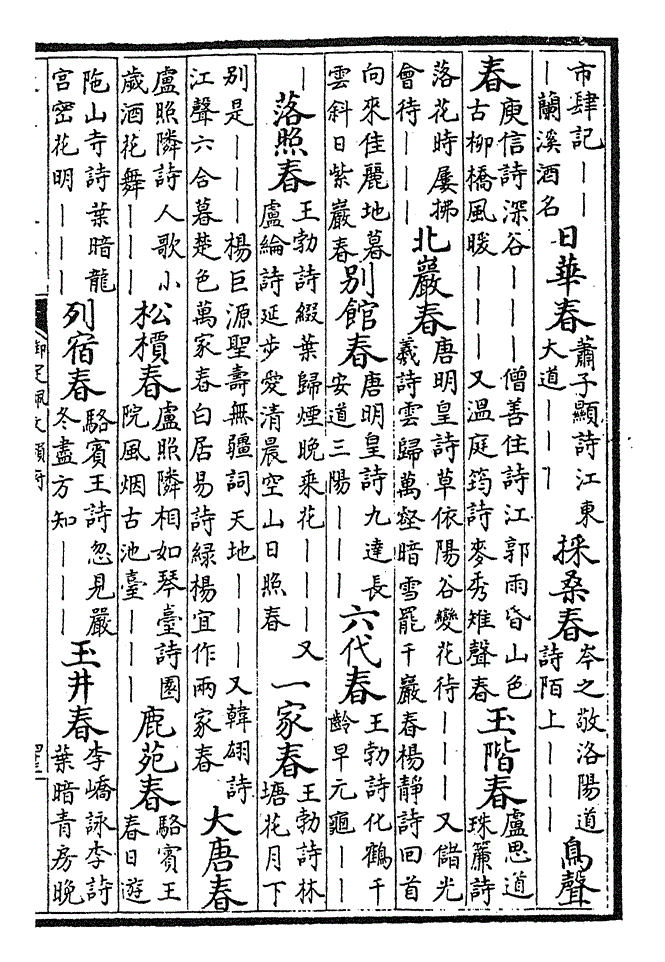 市肆記｜｜
｜蘭溪酒名
日華春
蕭子顯詩江東
大道｜｜｜
採桑春
岑之敬洛陽道
詩陌上｜｜｜
鳥聲
春
庾信詩深谷｜｜｜僧善住詩江郭雨昏山色
古柳橋風暖｜｜｜又溫庭筠詩麥秀雉聲春
玉階春
盧思道
珠簾詩
落花時屢拂
會待｜｜｜
北巖春
唐明皇詩草依陽谷變花待｜｜｜又儲光
羲詩雲歸萬壑暗雪罷千巖春楊靜詩回首
向來佳麗地暮
雲斜日紫巖春
別館春
唐明皇詩九達長
安道三陽｜｜｜
六代春
王勃詩化鶴千
齡早元龜｜｜
｜
落照春
王勃詩綴葉歸煙晚乘花｜｜｜又
盧綸詩延步愛清晨空山日照春
一家春
王勃詩林
塘花月下
別是｜｜｜楊巨源聖壽無疆詞天地｜｜｜又韓翃詩
江聲六合暮楚色萬家春白居易詩綠楊宜作兩家春
大唐春
盧照隣詩人歌小
歲酒花舞｜｜｜
松檟春
盧照隣相如琴臺詩園
院風烟古池臺｜｜｜
鹿苑春
駱賓王
春日遊
陁山寺詩葉暗龍
宮密花明｜｜｜
列宿春
駱賓王詩忽見嚴
冬盡方知｜｜｜
玉井春
李嶠詠李詩
葉暗青房晚